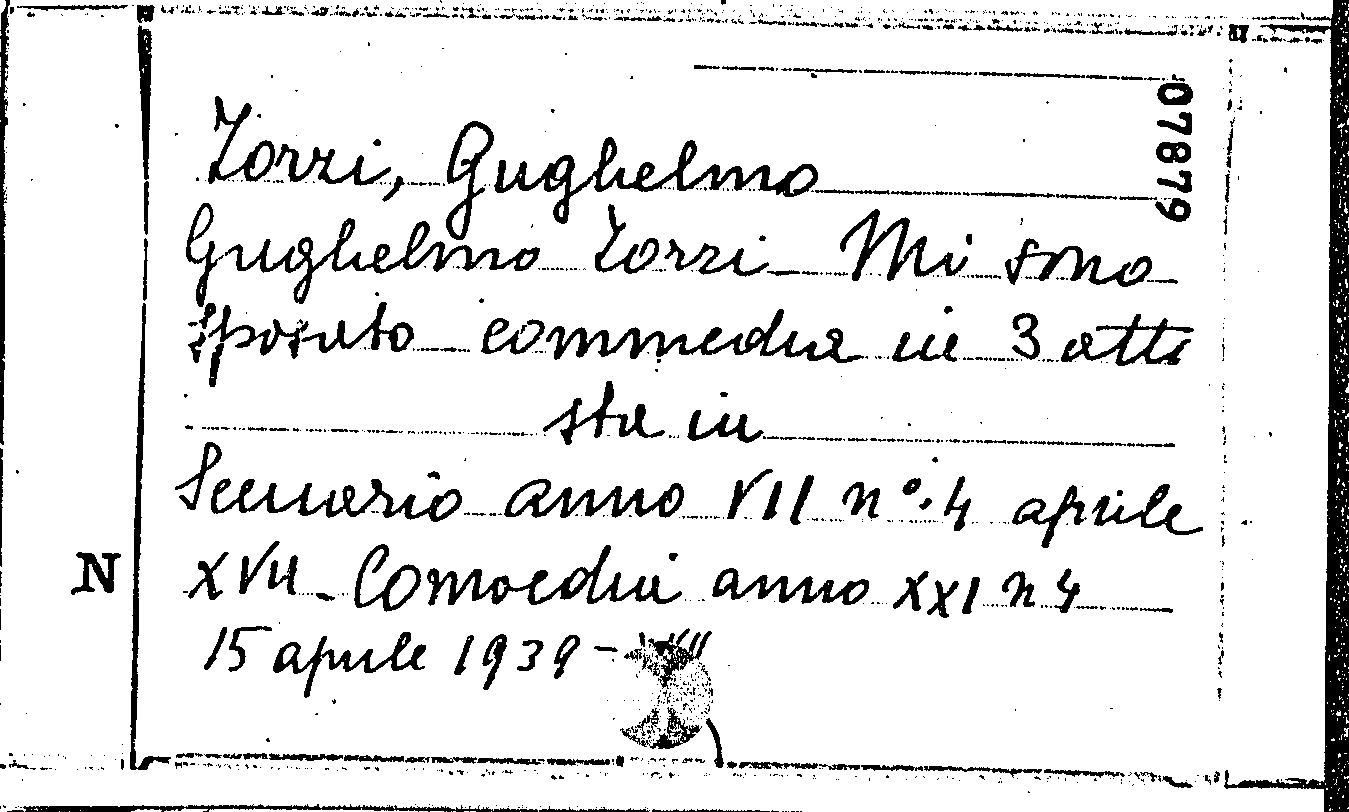 Zorzi, Guglielmo
07879
Guglielmo Zorzi Mi sono
sposato commedia in 3 atti
sta in
Scenario anno VIII n°. 4 aprile
N
XVII - Comoedia anno XXI n 4
15 aprile 1939 -